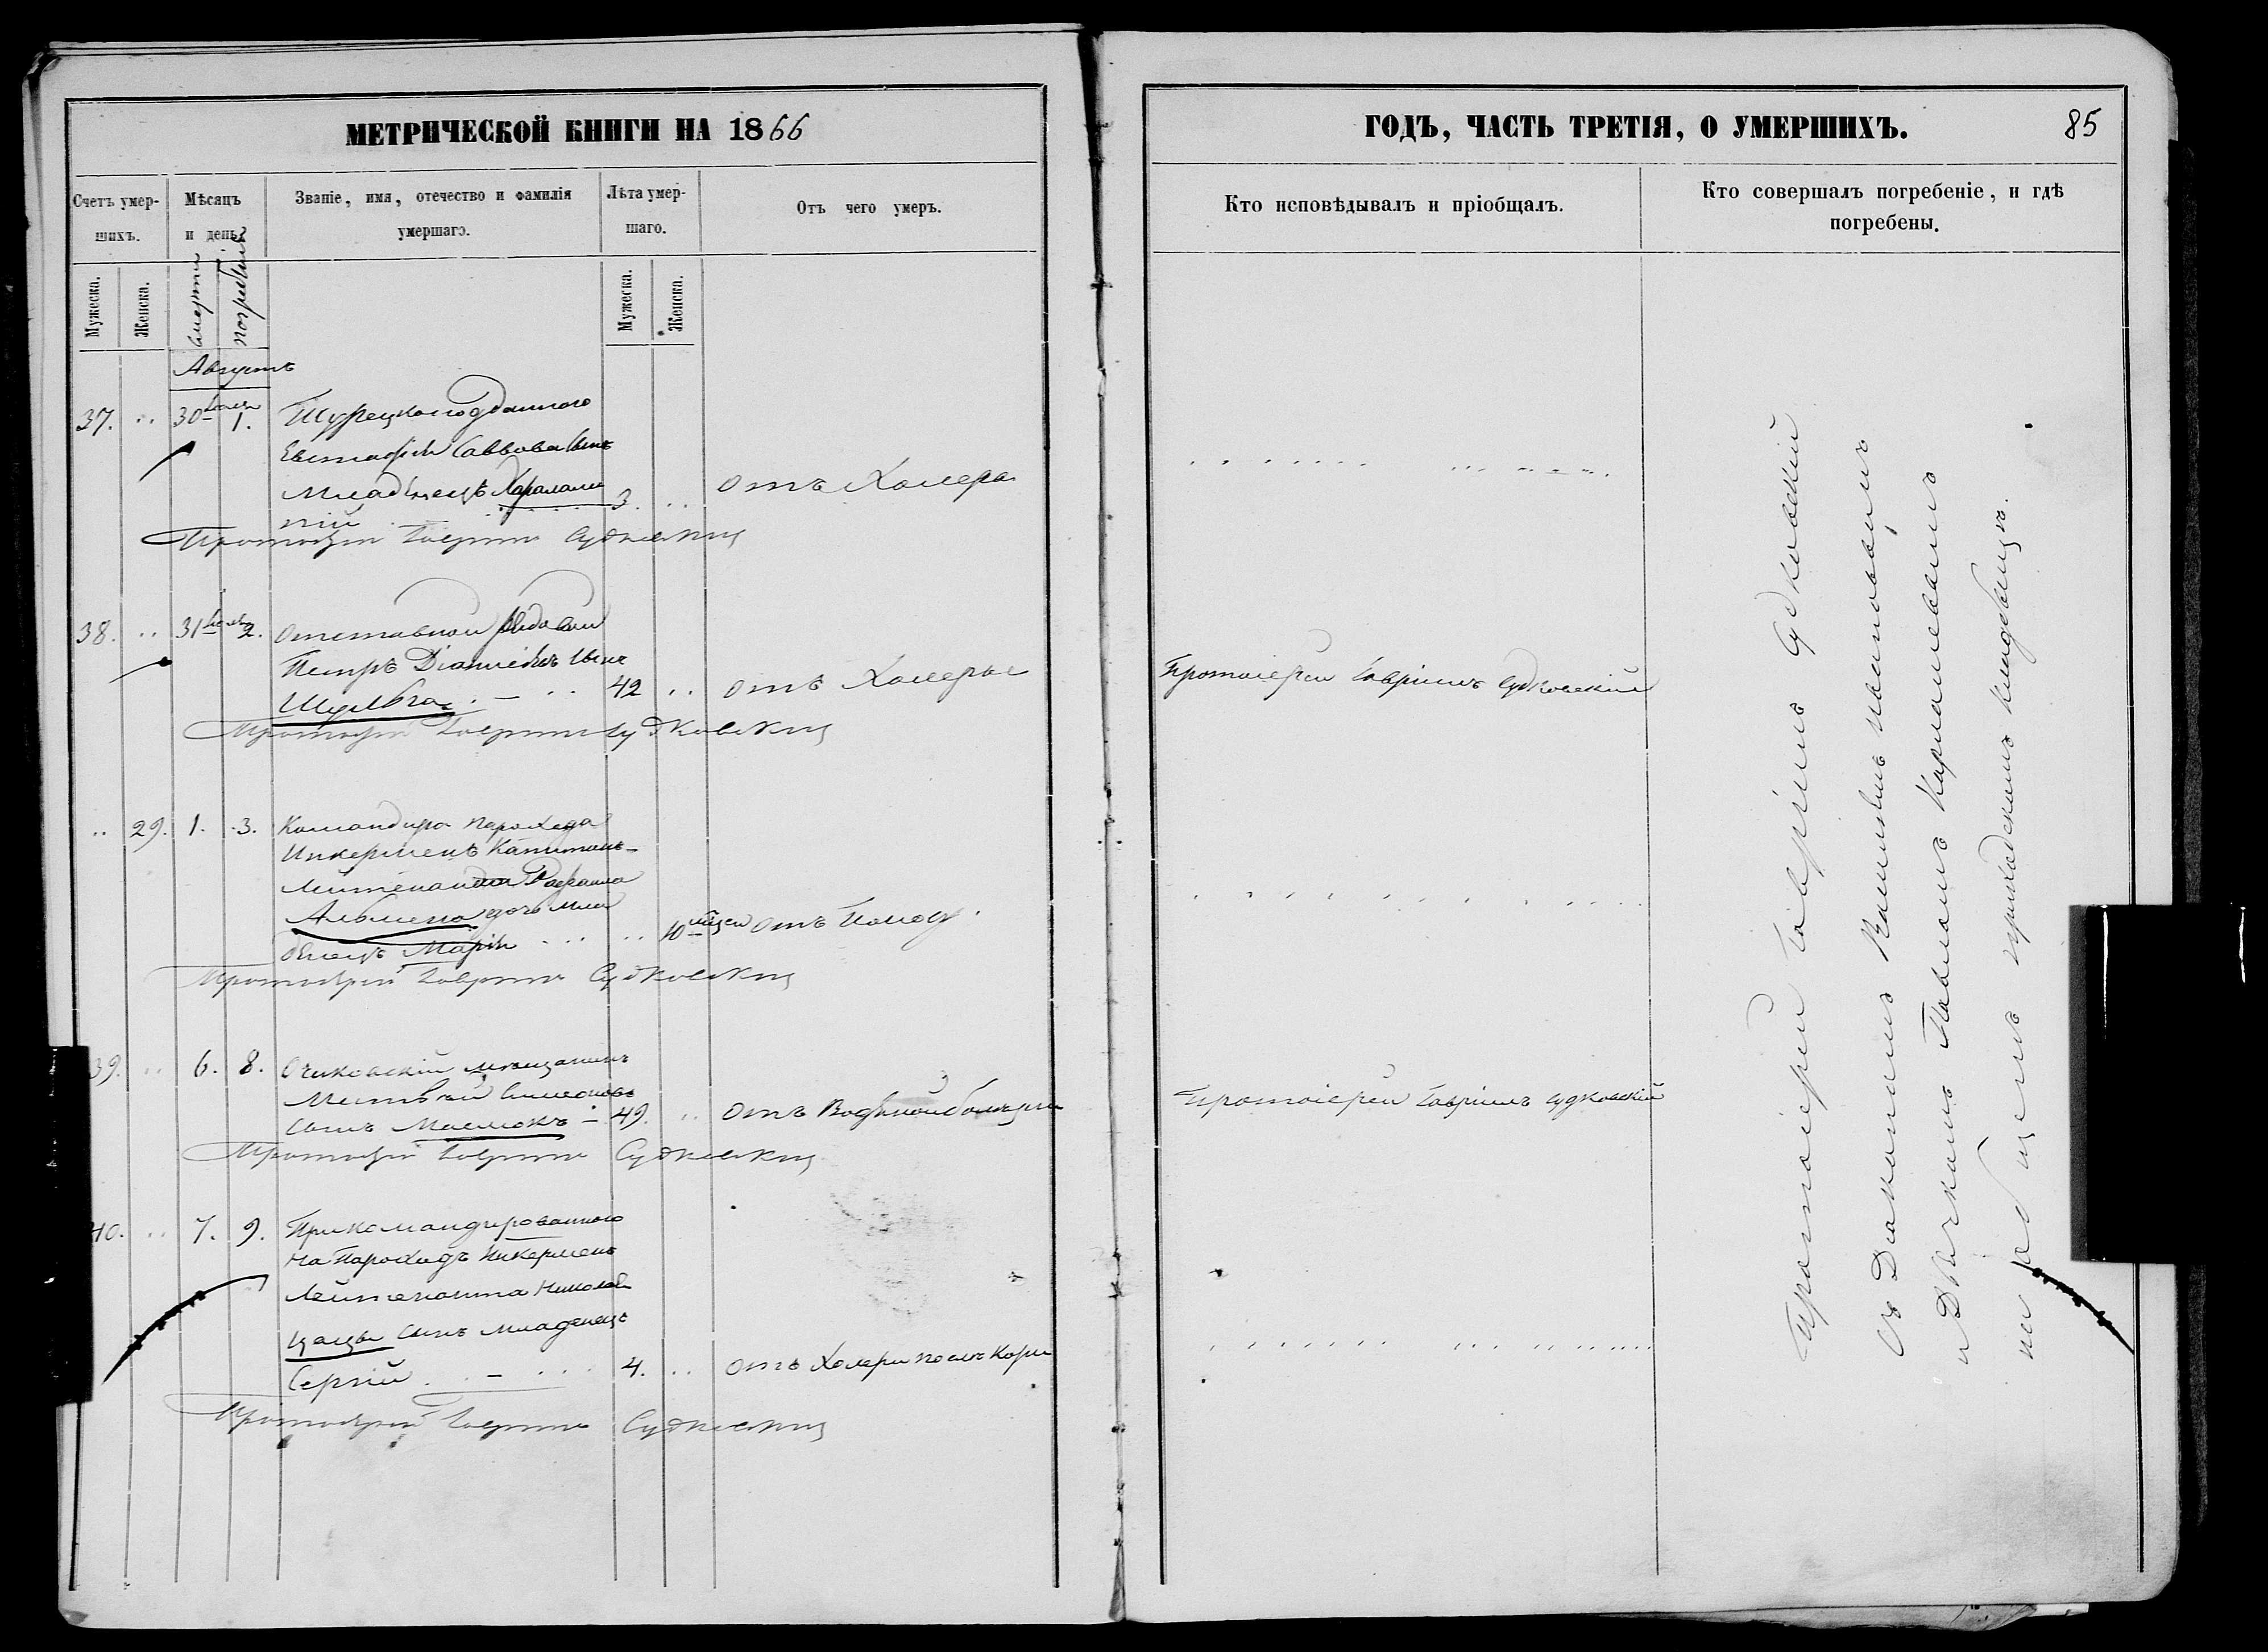 МЕТРИЧЕСКОЙ КНИГИ НА 1866
Счетъ умер-
шихъ.
Мѣсяцъ
и день.
Званіе, имя, отечество и фамилія
умершаго.
Лѣта умер-
шаго.
Отъ чего умеръ.
Мужеска.
Женска.
смерти
погребенія
Мужеска.
Женска.
Августъ
37. 30 1. Турецкоподданного
Евстафія Саввова сынъ
Младенецъ Харалам
пій 3. отъ Холеры
Протоіерей Гавріилъ Судковскій
38. 31 2. отставной рядовой
Петръ сынъ
Шульга 42 отъ Холеры
Протоіерей Гавріилъ Судковскій
29. 1. 3. Командира парохода
Инкерменъ Капитанъ-
Лейтенанта
дочь мла
денецъ Марія 10 отъ
Протоіерей Гавріилъ Судковскій
39. 6. 8. Очаковскій мѣщанинъ
Матвѣй Симеоновъ
сынъ 49. отъ Водяной болѣзни
Протоіерей Гавріилъ Судковскій
40. 7. 9. Прикомандированного
на Пароходъ Инкерменъ
Лейтенанта Николая
сынъ младенецъ
Сергій 4. отъ Холеры послѣ Кори
Протоіерей Гавріилъ Судковскій
ГОДЪ, ЧАСТЬ ТРЕТІЯ, О УМЕРШИХЪ.
85
Кто исповѣдывалъ и пріобщалъ.
Кто совершалъ погребеніе, и гдѣ
погребены.
Протоіерей Гавріилъ Судковскій
Протоіерей Гавріилъ Судковскій
Протоіерей Гавріилъ Судковскій
съ Діакономъ
и Дьячкомъ Павломъ
на общемъ приходскомъ кладбищѣ.